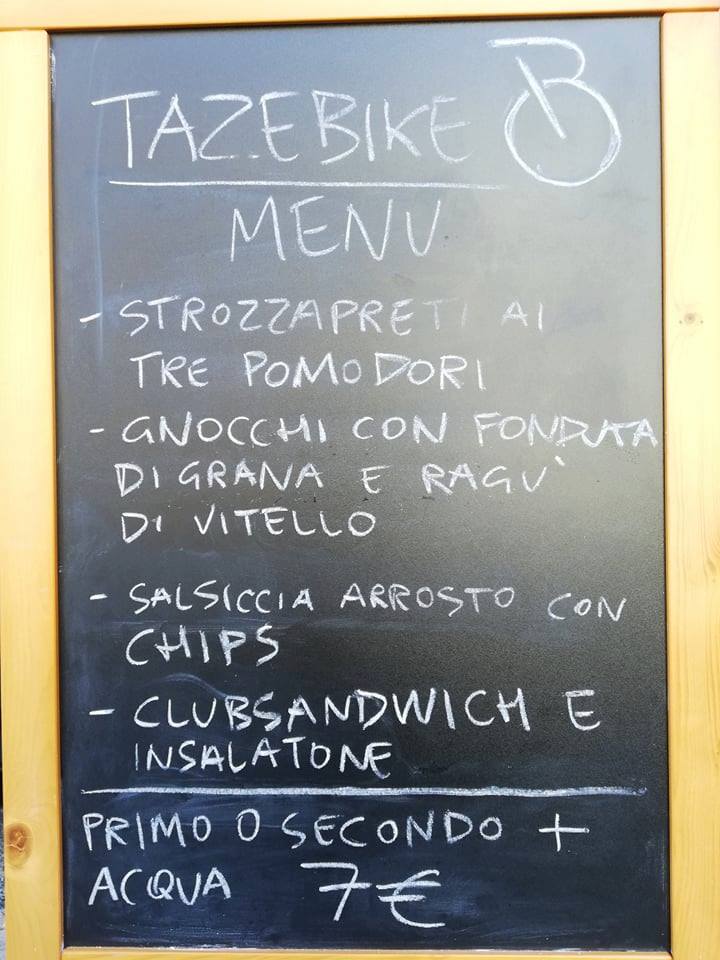 TAZEBIKE B
MENU
- STROZZAPRETI AI
TRE POMODORI
- GNOCCHI CON FONDUTA
DI GRANA E RAGU'
DI VITELLO
- SALSICCIA ARROSTO CON
CHIPS
- CLUBSANDWICH E
INSALATONE
PRIMO O SECONDO +
ACQUA 7€